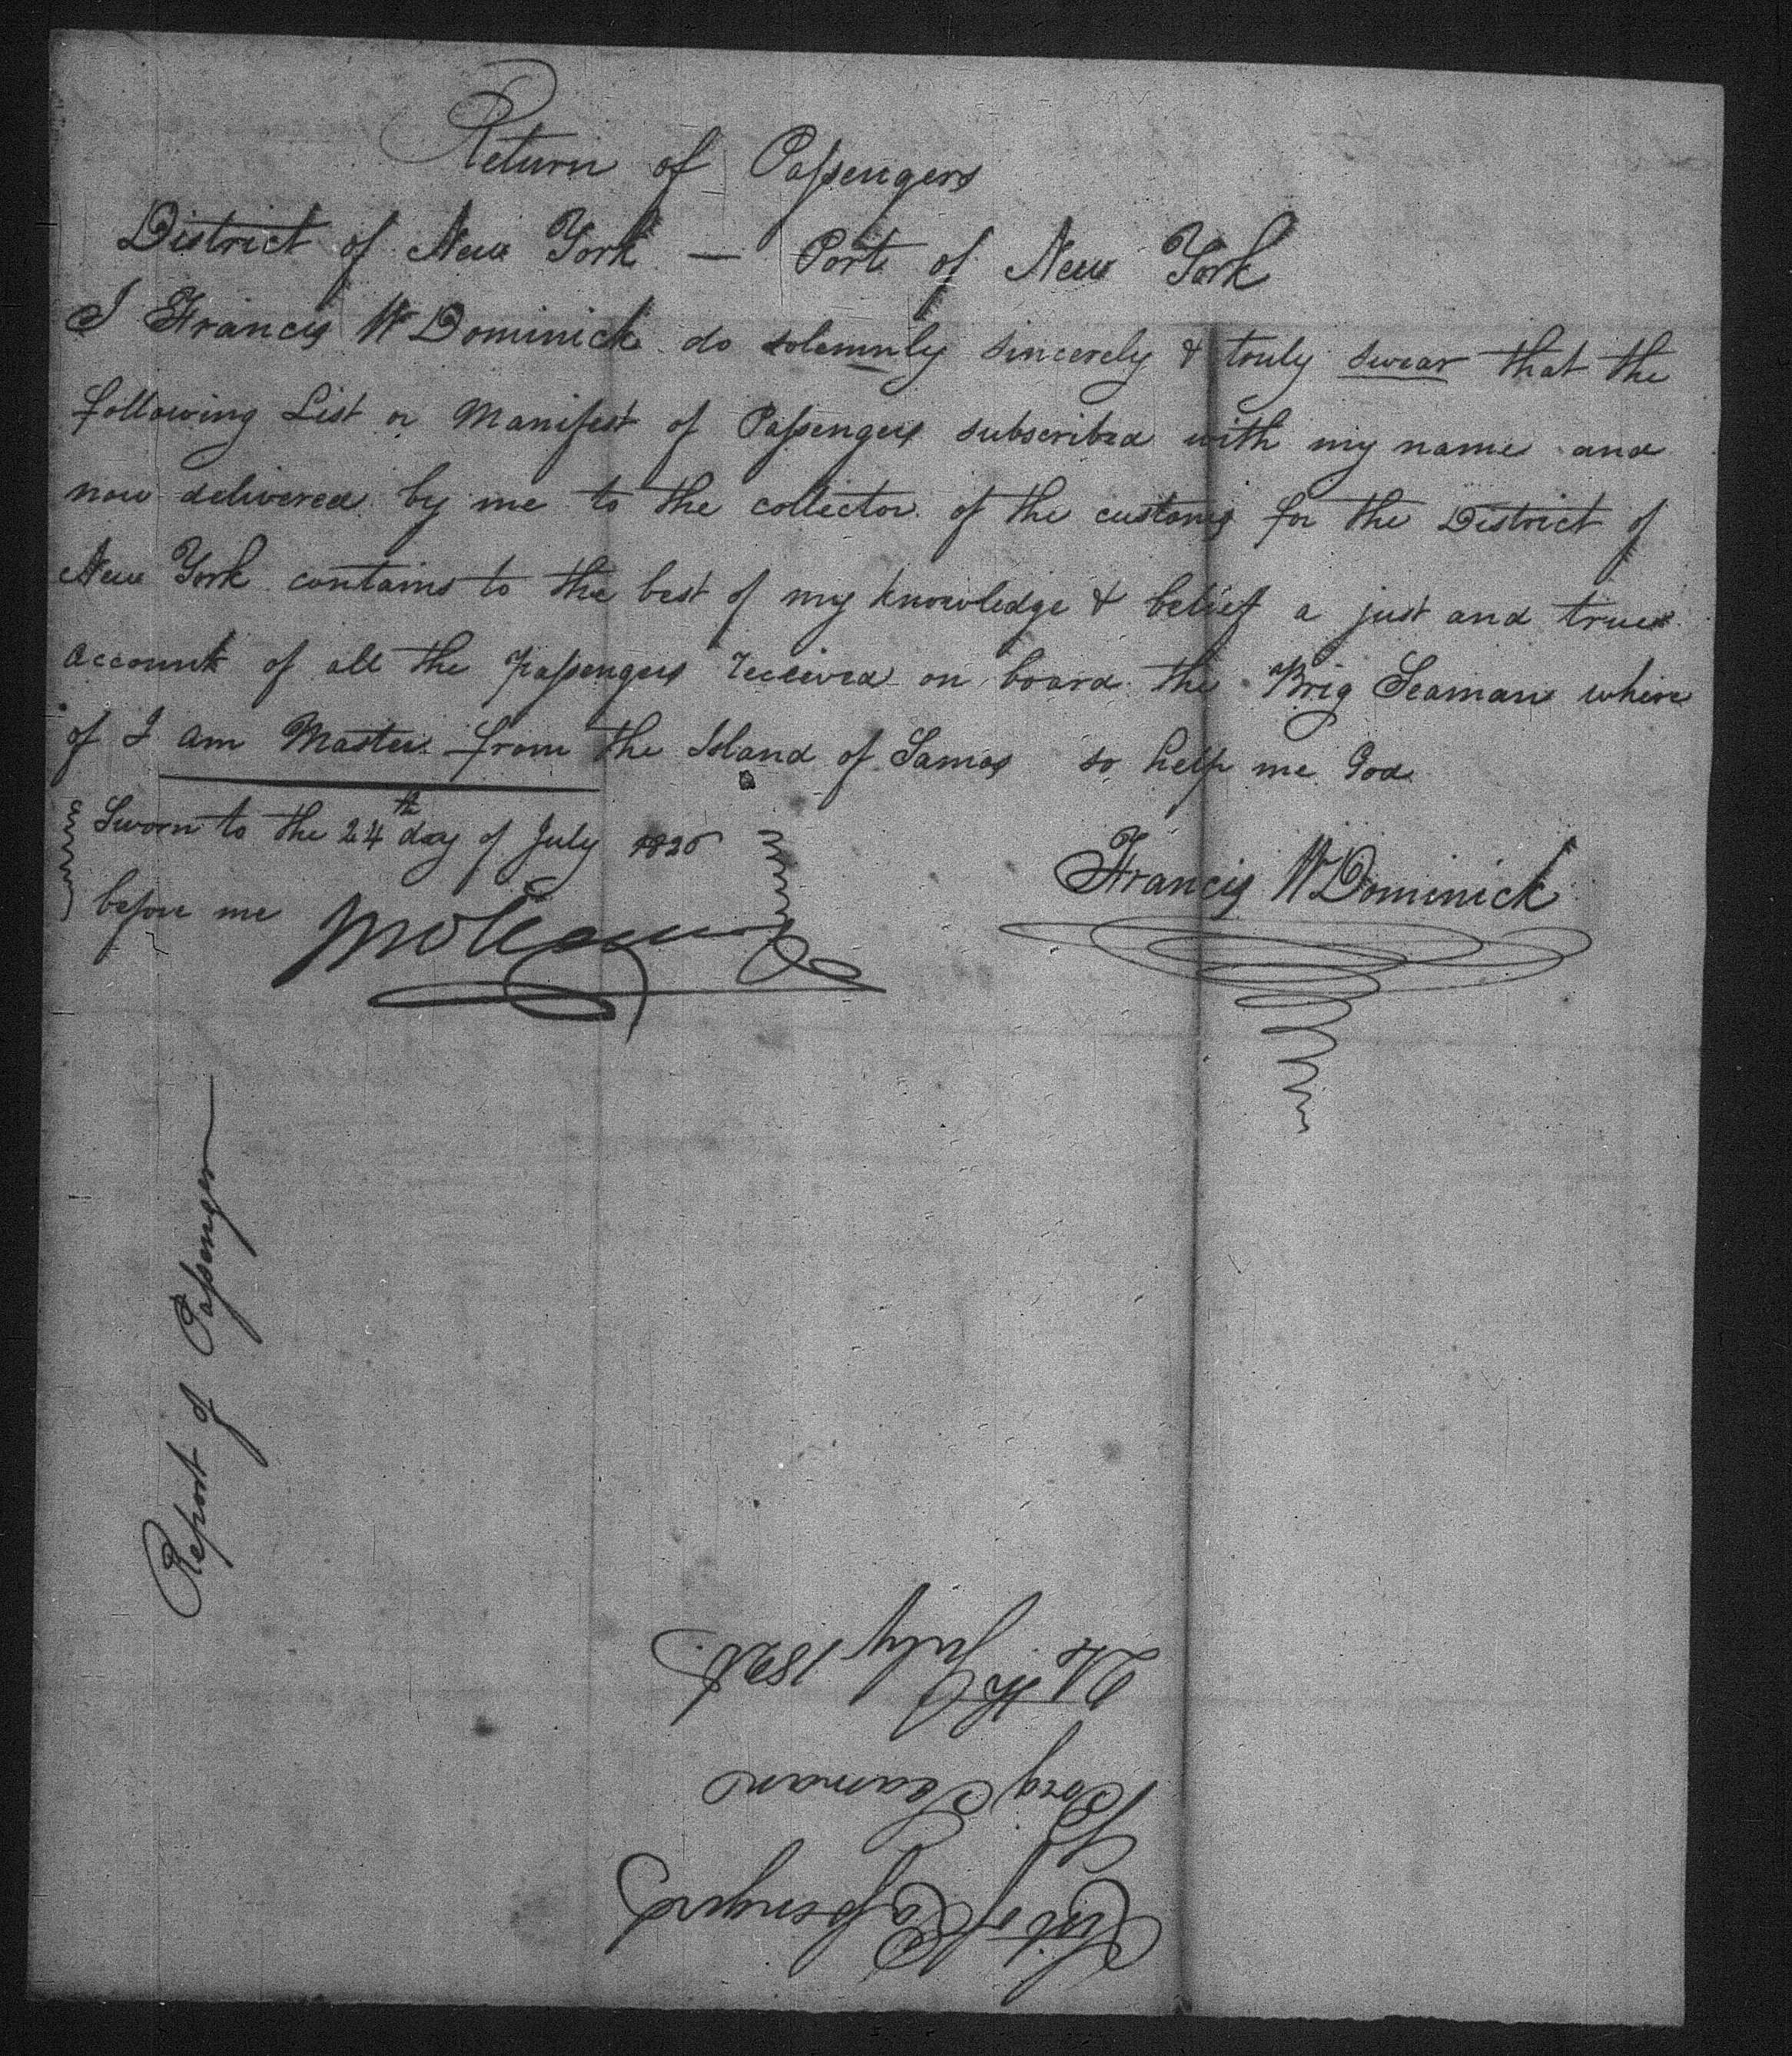 Return of Passengers
District of New York — Port of New York
I Francis W Dominick do solemnly sincerely & truly swear that the
following List or Manifest of Passengers subscribed with my name and
now delivered by me to the collector of the customs for the District of
New York contains to the best of my knowledge & belief a just and true
account of all the passengers received on board the Brig Seaman where
of I am Master from the Island of Samos so help me God
Sworn to the 24th day of July 1826
before me
Francis W Dominick
Report of Passengers
List of Passengers
Brig Seaman
24th July 1826